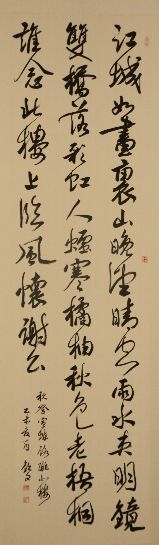 江城如畫裏山晚望晴空兩水夾明鏡
雙橋落彩虹人煙寒橘柚秋色老梧桐
誰念北樓上臨風懷謝公
秋登宣城謝朓北樓
乙未夏月